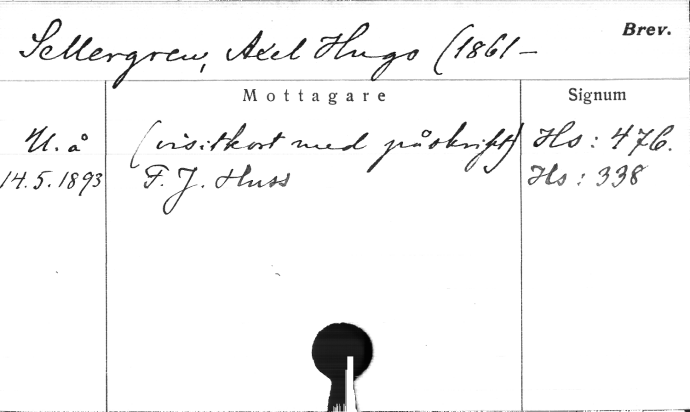 Brev.
Sellergren, Axel Hugo (1861 –
Mottagare Signum
U. å (visitkort med påskrift) Hs: 476.
14.5.1893 F. J. Huss Hs: 338